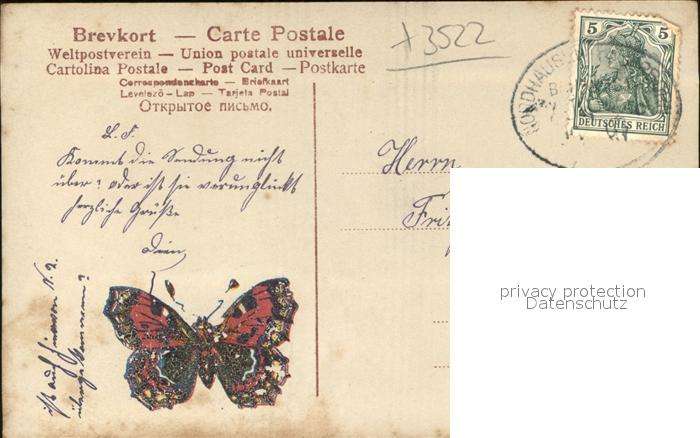 Brevkort — Carte Postale
Weltpostverein — Union postale universelle
Cartolina Postale — Post Card — Postkarte
Correspondenzkarte — Briefkaart
Levelező-Lap — Tarjeta Postal
Открытое письмо.
+3522
5 5
DEUTSCHES REICH
NORDHAUS
L. F.
Kommt die Sendung nicht
über? oder ist sie verunglückt
herzliche Grüße
Dein
ist auf N. 2.
Herrn
Fri
privacy protection
Datenschutz